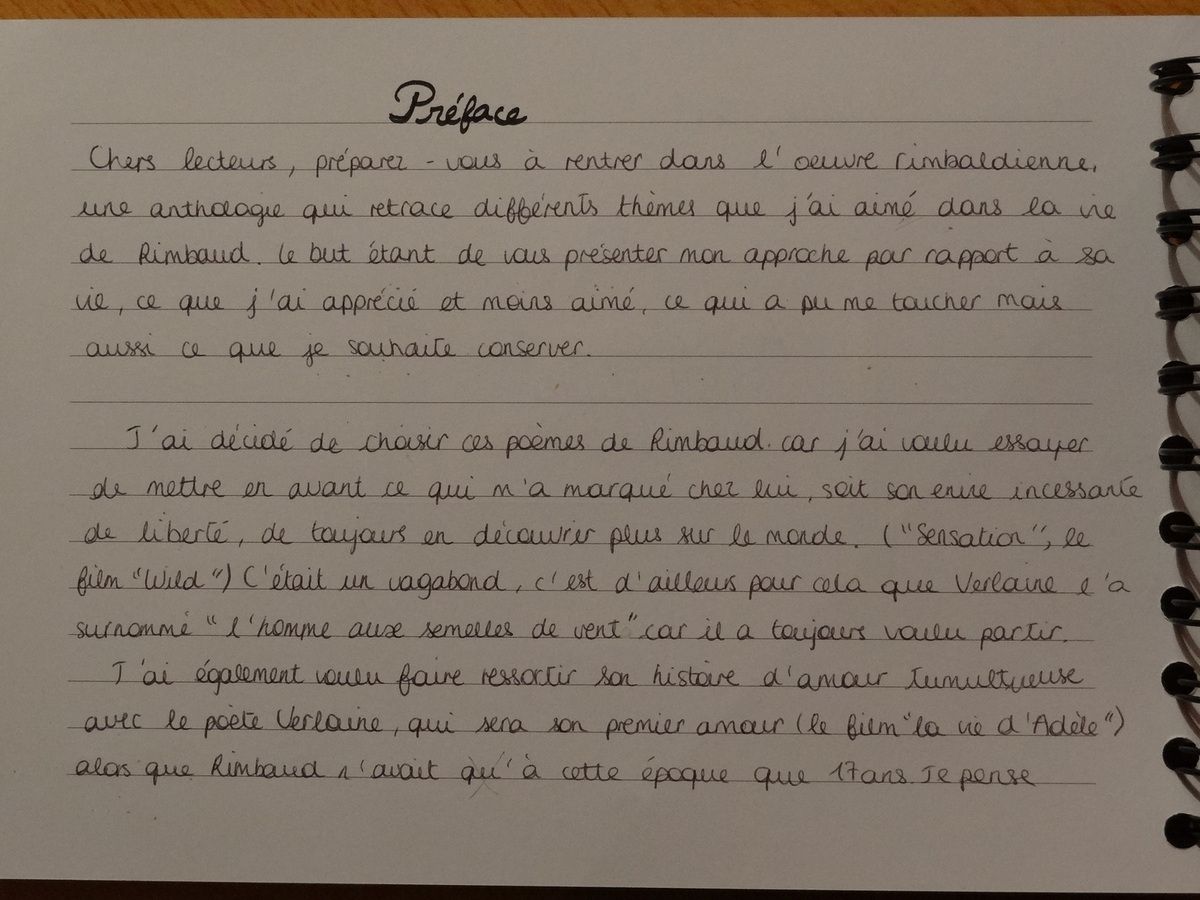 Préface
Chers lecteurs, préparez-vous à rentrer dans l'oeuvre rimbaldienne,
une anthologie qui retrace différents thèmes que j'ai aimé dans la vie
de Rimbaud. Le but étant de vous présenter mon approche par rapport à sa
vie, ce que j'ai apprécié et moins aimé, ce qui a pu me toucher mais
aussi ce que je souhaite conserver.
J'ai décidé de choisir ces poèmes de Rimbaud car j'ai voulu essayer
de mettre en avant ce qui m'a marqué chez lui, soit son envie incessante
de liberté, de toujours en découvrir plus sur le monde. ("Sensation", le
film "Wild") C'était un vagabond, c'est d'ailleurs pour cela que Verlaine l'a
surnommé "l'homme aux semelles de vent" car il a toujours voulu partir.
J'ai également voulu faire ressortir son histoire d'amour tumultueuse
avec le poète Verlaine, qui sera son premier amour (le film "la vie d'Adèle")
alors que Rimbaud n'avait qu'à cette époque que 17 ans. Je pense